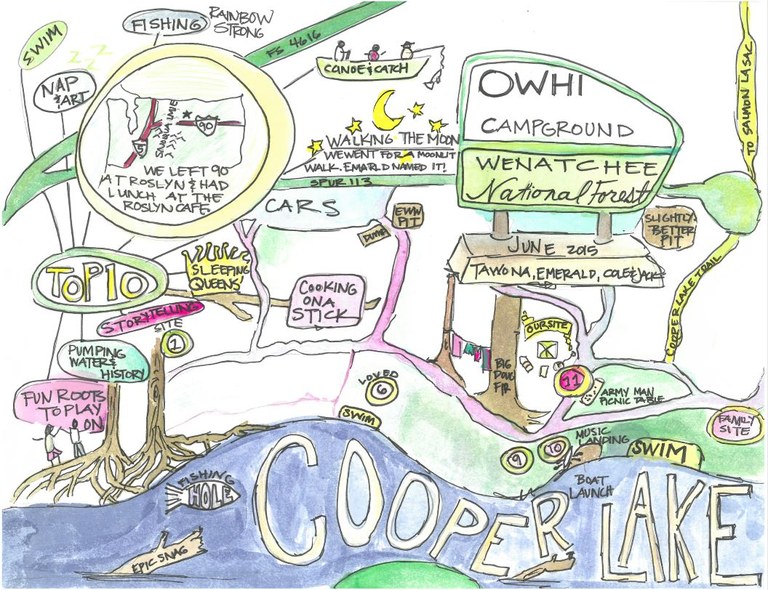 SWIM
FISHING
RAINBOW
STRONG
FS 4616
NAP
& ART
CANOE & CATCH
OWHI
CAMPGROUND
WENATCHEE
National Forest
TO SALMON LA SAC
5
90
WE LEFT 90
AT ROSLYN & HAD
LUNCH AT THE
ROSLYN CAFE.
WALKING THE MOON
WE WENT FOR A MOONLIT
WALK. EMARLD NAMED IT!
SPUR 113
CARS
EWW
PIT
DUMP
SLIGHTLY
BETTER
PIT
JUNE 2015
TAWONA, EMERALD, COLE & JACK
TOP 10
SLEEPING
QUEENS
COOKING
ON A
STICK
STORYTELLING
SITE
1
COOPER LAKE TRAIL
PUMPING
WATER &
HISTORY
OUR SITE
BIG
DOUG
FIR
11
ARMY MAN
PICNIC TABLE
LOVED
6
FUN ROOTS
TO PLAY
ON
SWIM
FAMILY
SITE
9
10
MUSIC
LANDING
SWIM
BOAT
LAUNCH
FISHING
HOLE
EPIC SNAG
COOPER LAKE